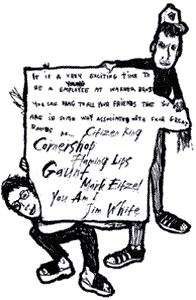 IT IS A VERY EXCITING TIME TO
BE A YOUNG EMPLOYEE AT WARNER BROS.
YOU CAN BRAG TO ALL YOUR FRIENDS THAT YOU
ARE IN SOME WAY ASSOCIATED WITH SUCH GREAT
BANDS AS... Citizen King
Cornershop
Flaming Lips
Gaunt
Mark Eitzel
You Am I
Jim White